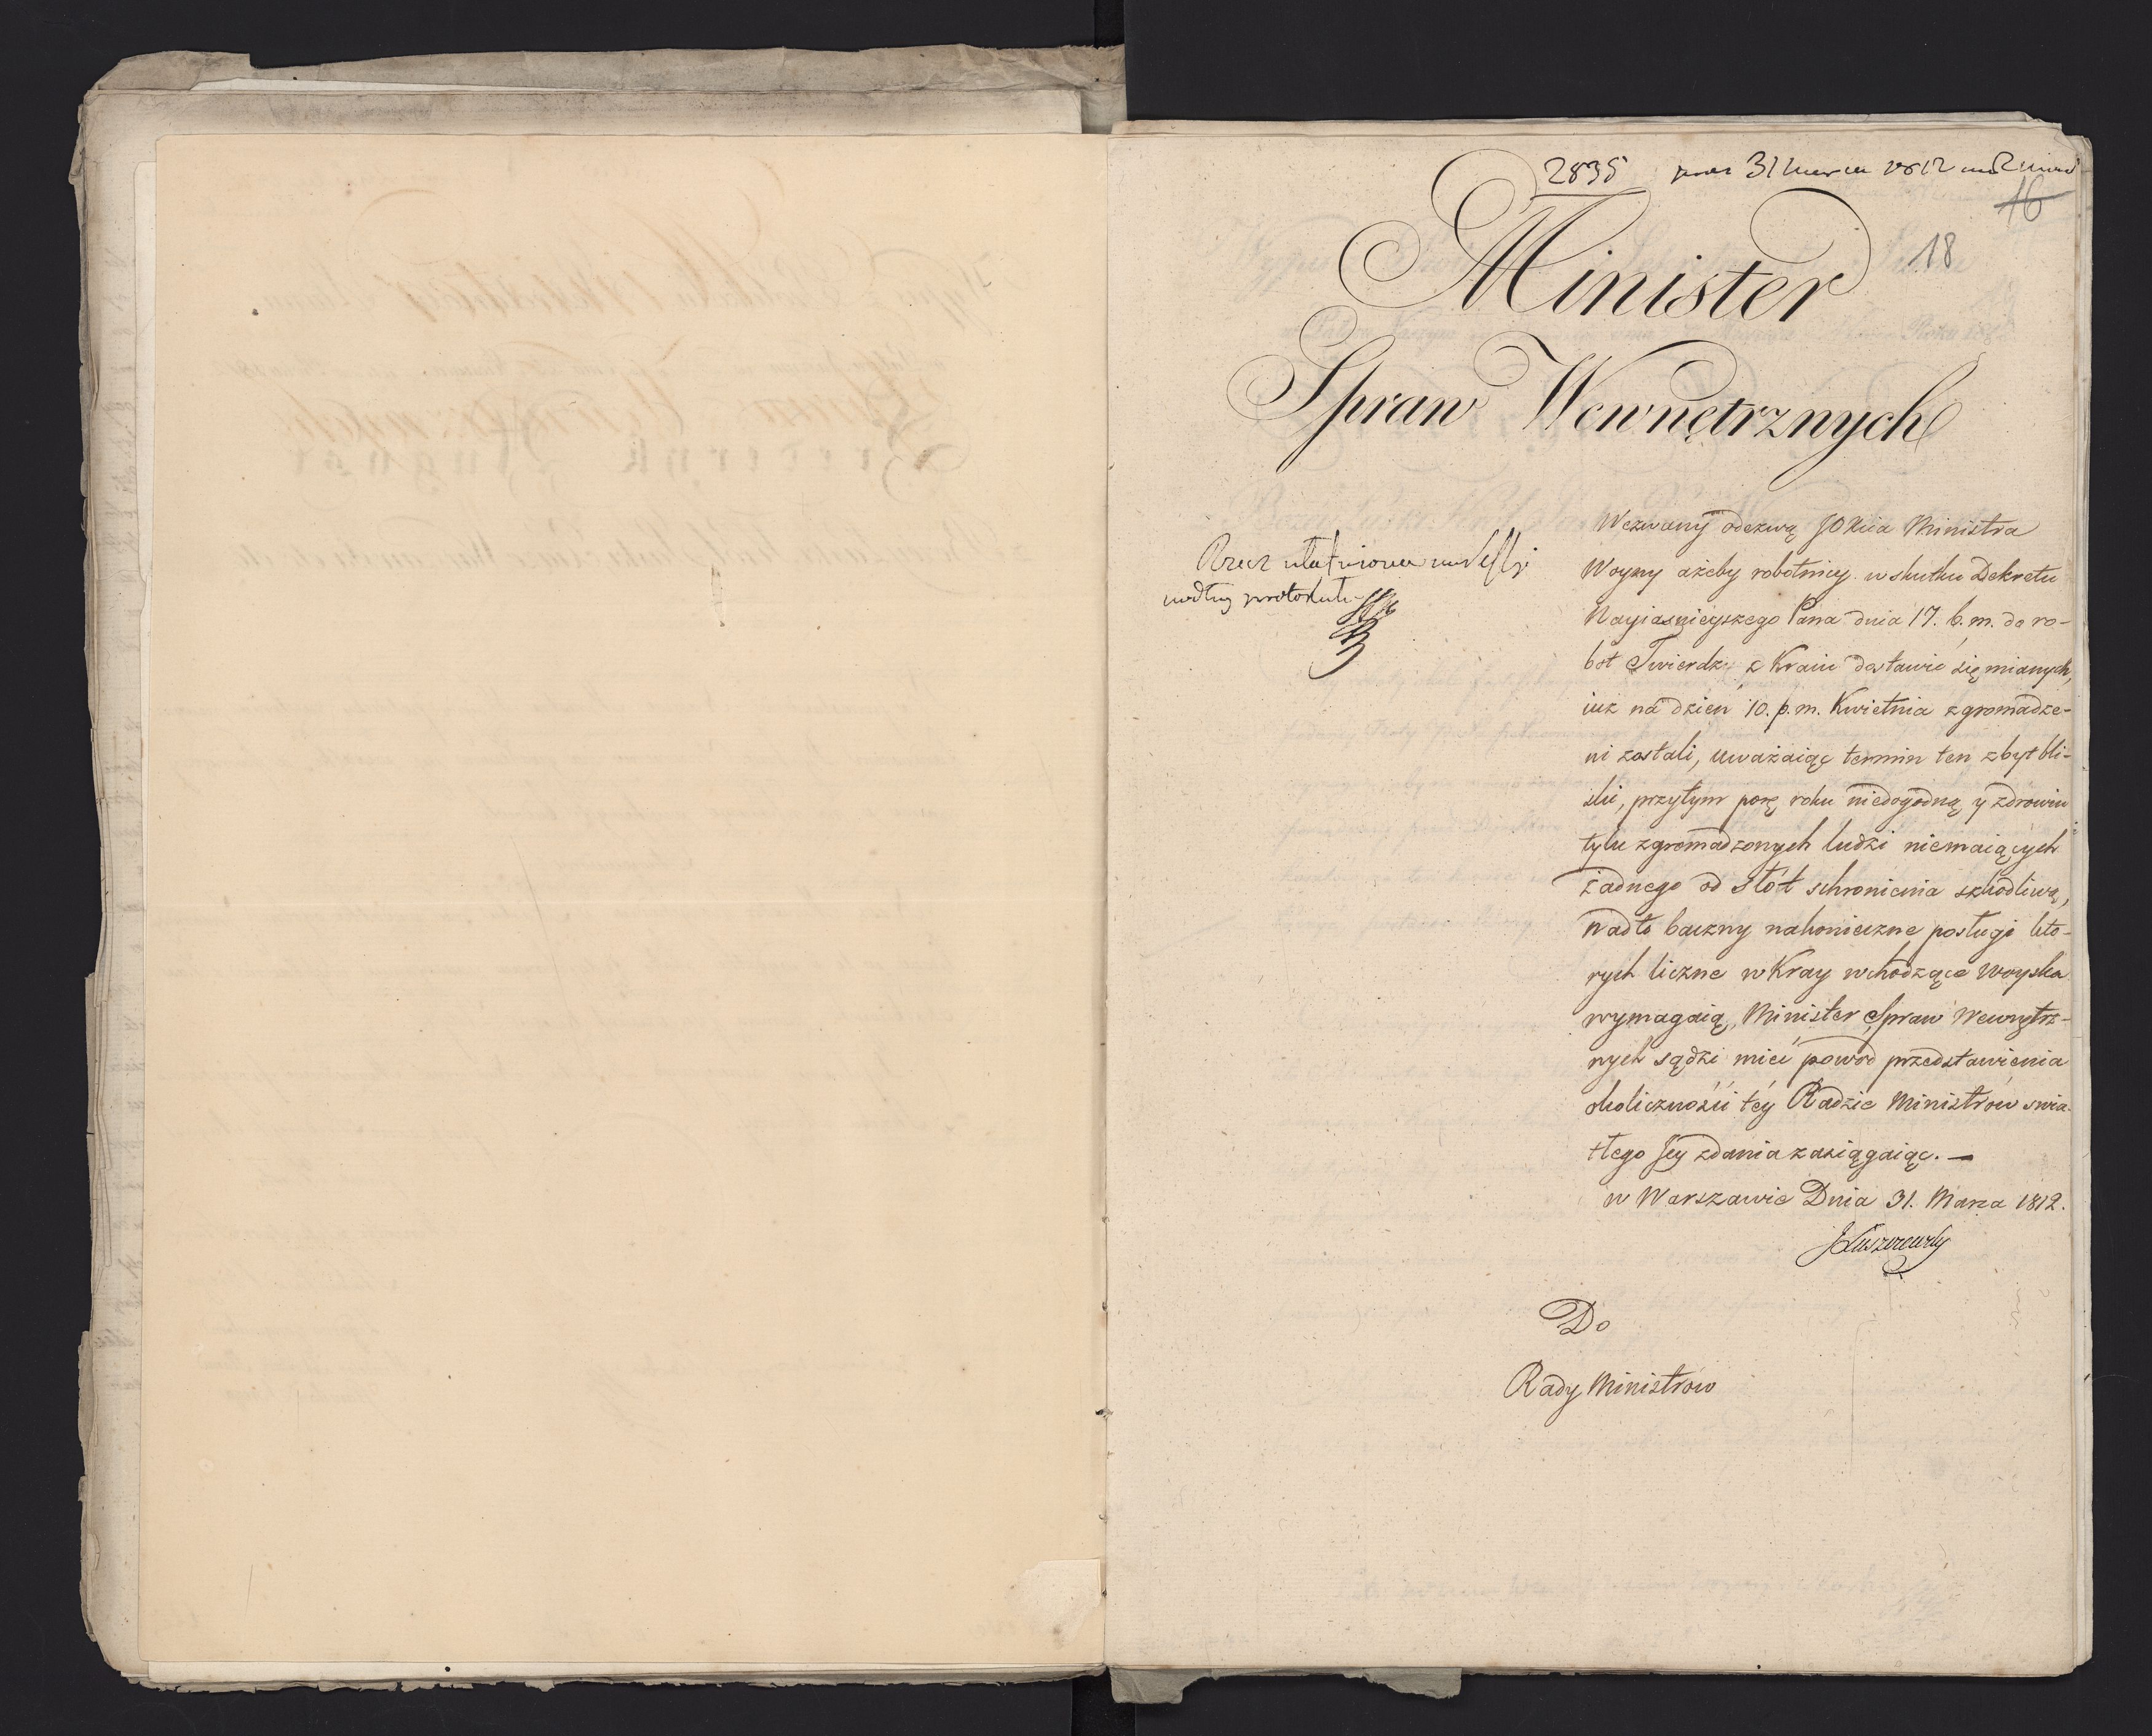 2835 31 Marca 1812
16
18
Minister
Spraw Wewnętrznych
Rzecz ułatwiona na Sessyi
według protokułu
Wezwany odezwą JO Xcia Ministra
Woyny ażeby robotnicy w skutku Dekretu
Nayiasnieyszego Pana dnia 17. b. m. do ro-
bót Twierdzy z Kraiu dostawić się mianych,
iuż na dzień 10. p. m. Kwietnia zgromadze-
ni zostali, uważaiąc termin ten zbyt bli-
ski, przytym porę roku niedogodną y zdrowiu
tylu zgromadzonych ludzi niemaiących
żadnego od słót schronienia szkodliwą,
nadto baczny na konieczne posługi któ-
rych liczne w Kray wchodzące woyska
wymagaią, Minister Spraw Wewnętrz-
nych sądzi mieć powód przedstawienia
okoliczności téy Radzie Ministrów swia-
tłego Jey zdania zasiągaiąc. —
w Warszawie Dnia 31. Marca 1812.
JŁuszczewsky
Do
Rady Ministrów